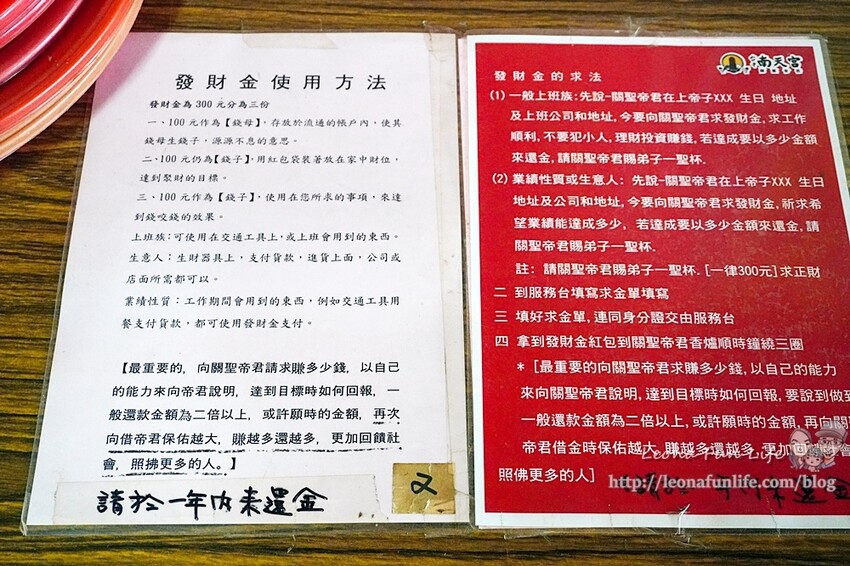 發財金使用方法
發財金為300元分為三份
一、100元作為【錢母】,存放於流通的帳戶內,使其
錢母生錢子,源源不息的意思。
二、100元仍為【錢子】,用紅包袋裝著放在家中財位,
達到聚財的目標。
三、100元作為【錢子】,使用在您所求的事項,來達
到錢咬錢的效果。
上班族:可使用在交通工具上,或上班會用到的東西。
生意人:生財器具上,支付貨款,進貨上面,公司或
店面所需都可以。
業績性質:工作期間會用到的東西,例如交通工具用
餐支付貨款,都可使用發財金支付。
【最重要的,向關聖帝君請求賺多少錢,以自己
的能力來向帝君說明,達到目標時如何回報,一
般還款金額為二倍以上,或許願時的金額,再次
向借帝君保佑越大,賺越多還越多,更加回饋社
會,照拂更多的人。】
請於一年內來還金
又
南天宮
發財金的求法
(1) 一般上班族:先說-關聖帝君在上帝子XXX 生日 地址
及上班公司和地址,今要向關聖帝君求發財金,求工作
順利,不要犯小人,理財投資賺錢,若達成要以多少金額
來還金,請關聖帝君賜弟子一聖杯.
(2) 業績性質或生意人: 先說-關聖帝君在上帝子XXX 生日
地址及公司和地址,今要向關聖帝君求發財金,祈求希
望業績能達成多少, 若達成要以多少金額來還金,請
關聖帝君賜弟子一聖杯.
註: 請關聖帝君賜弟子一聖杯.[一律300元]求正財
二 到服務台填寫求金單填寫
三 填好求金單,連同身分證交由服務台
四 拿到發財金紅包到關聖帝君香爐順時鐘繞三圈
*[最重要的向關聖帝君求賺多少錢,以自己的能力
來向關聖帝君說明,達到目標時如何回報,要說到做到
一般還款金額為二倍以上,或許願時的金額,再向關
帝君借金時保佑越大,賺越多還越多,更加回饋社會
照拂更多的人]
Leona Fun Life
http://leonafunlife.com/blog